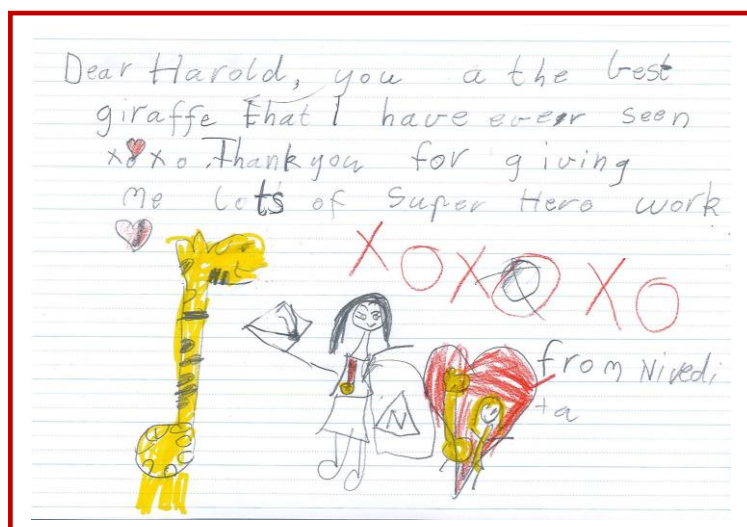 Dear Harold, you a the best
giraffe that I have ever seen
xoxo. Thank you for giving
me lots of Super Hero work
XOXOXO
N
from Nivedi
ta